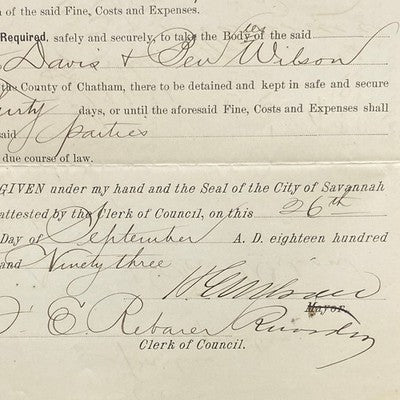 n of the said Fine, Costs and Expenses.
Required, safely and securely, to take the Bodies of the said
Davis & Ben Wilson
the County of Chatham, there to be detained and kept in safe and secure
days, or until the aforesaid Fine, Costs and Expenses shall
said parties
due course of law.
GIVEN under my hand and the Seal of the City of Savannah
attested by the Clerk of Council, on this 26th
Day of September A. D. eighteen hundred
and Ninety three
Mayor.
E. Rebarer
Clerk of Council.